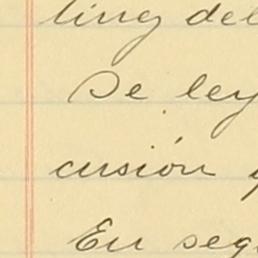 ting del
Se ley
cusión
En seg